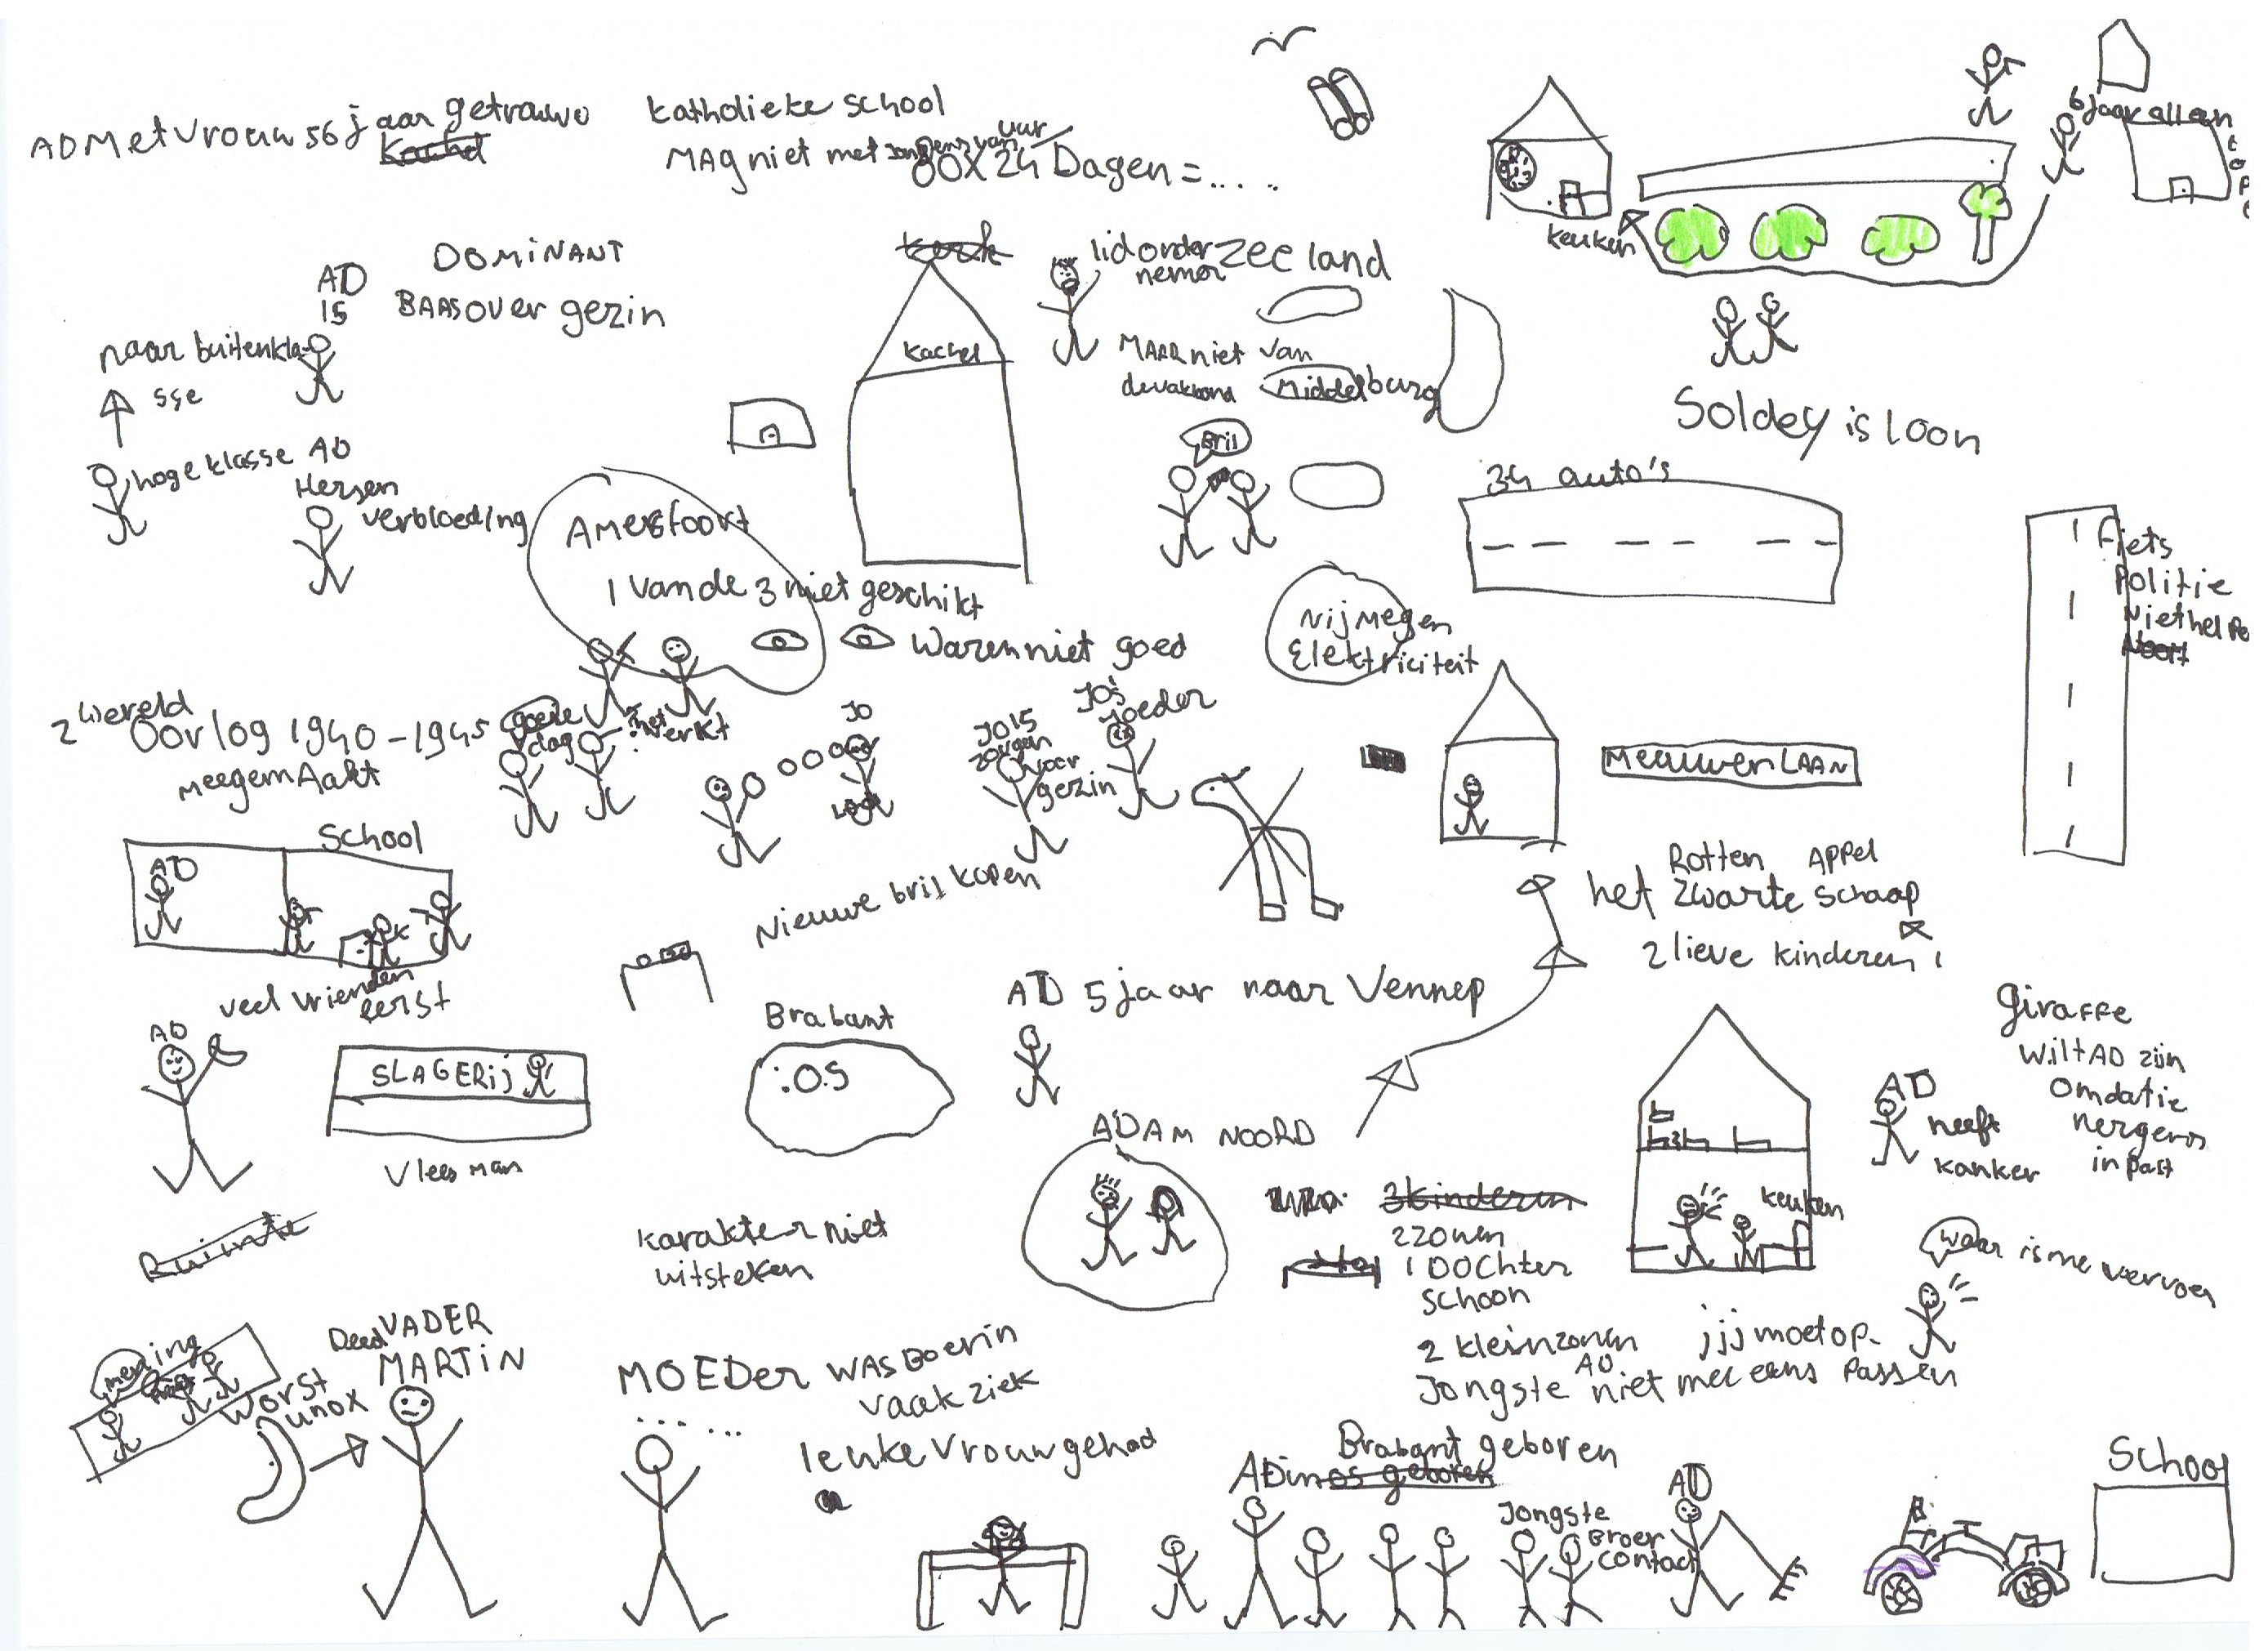 AD Met Vrouw 56 jaar getrouwd
Kachel
katholieke school
MAg niet met jongens van
uur
60X24 Dagen = ....
6 jaar allen
keuken
AD
15
DOMINANT
BAAS over gezin
naar buitenkla
sse
hoge klasse
AD
Hersen
verbloeding
kerk
kachel
lid order
nemer
zeeland
MAAR niet van
Middelburg
Bril
Soldey is loon
34 auto's
Fiets
Politie
Niet helpe
Amersfoort
1 van de 3 niet geschikt
Waren niet goed
Nijmegen
Elektriciteit
2 wereld
Oorlog 1940-1945
meegemAakt
goede
dag
het
werkt
JO
JO15
zorgen
voor
gezin
JO's
moeder
MeeuwenLAAN
School
AD
veel vrienden
eerst
Nieuwe bril kopen
Rotten APPel
het zwarte schaap
2 lieve kinderen
AD 5 jaar naar Vennep
AD
SLAGERij
Vlees man
Brabant
:O.S
ADAM NOORD
giraffe
wilt AD zijn
omdat ie
nergens
in past
AD
heeft
kanker
keuken
Ruimte
karakter niet
uitsteken
3 kinderen
2 zonen
1 DOChter
schoon
2 kleinzonen
Jongste AD niet mee eens
jij moet op-
passen
waar is me vervoer
mening
Worst
unox
Deed
VADER
MARTIN
MOEDer was Boerin
vaak ziek
leuke vrouw gehad
Brabant geboren
AD in os geboren
Jongste
Broer
contact
AD
School